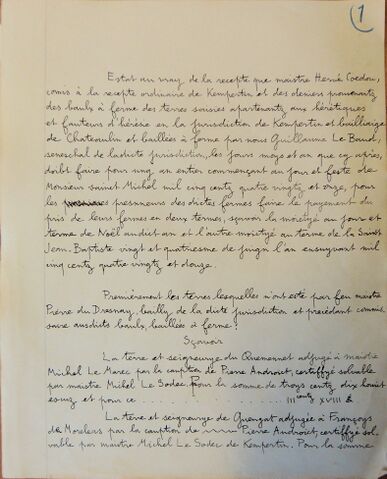 1
Estat au vray de la recepte que maistre Hervé Coedou,
comis à la recepte ordinaire de Kempertin et des deniers prouvenantz
des baulx à ferme des terres saisies apartenantz aux hérétiques
et fauteurs d'hérésie en la jurisdiction de Kempertin et bailliaige
de Chateaulin et baillées à ferme par nous Guillaume Le Baud,
seneschal de ladicte jurisdiction, les jours moys et an que cy après,
doibt faire pour ung an entier commençant au jour et feste de
Monsieur sainct Michel mil cinq centz quatre vingtz et onze, pour
les presnneurs des dictes fermes faire le payement du
pris de leurs fermes en deux termes, sçavoir la moictyé au jour et
terme de Noël audict an et l'autre moictyé au terme de la Sainct
Jean-Baptiste vingt et quatriesme de juign l'an ensuyvant mil
cinq centz quatre vingtz et douze.
Premièrement les terres lesquelles n'ont esté par feu maistre
Pierre du Dresnay, bailly de la dicte jurisdiction et précédant commis
saire ausdits baulx, baillées à ferme.
Sçavoir
La terre et seigneurye du Quemennet adjugé à maistre
Michel Le Marec par la caution de Pierre Androuet, certiffyé solvable
par maistre Michel Le Sodec pour la somme de troys centz dix houict
escuz et pour ce . . . . . . . . . . III centz XVIII
La terre et seigneurye de Guengat adjugée à Françoys
de Morelees par la caution de Pierre Androuet, certiffyé sol
vable par maistre Michel Le Sodec de Kempertin. Pour la somme